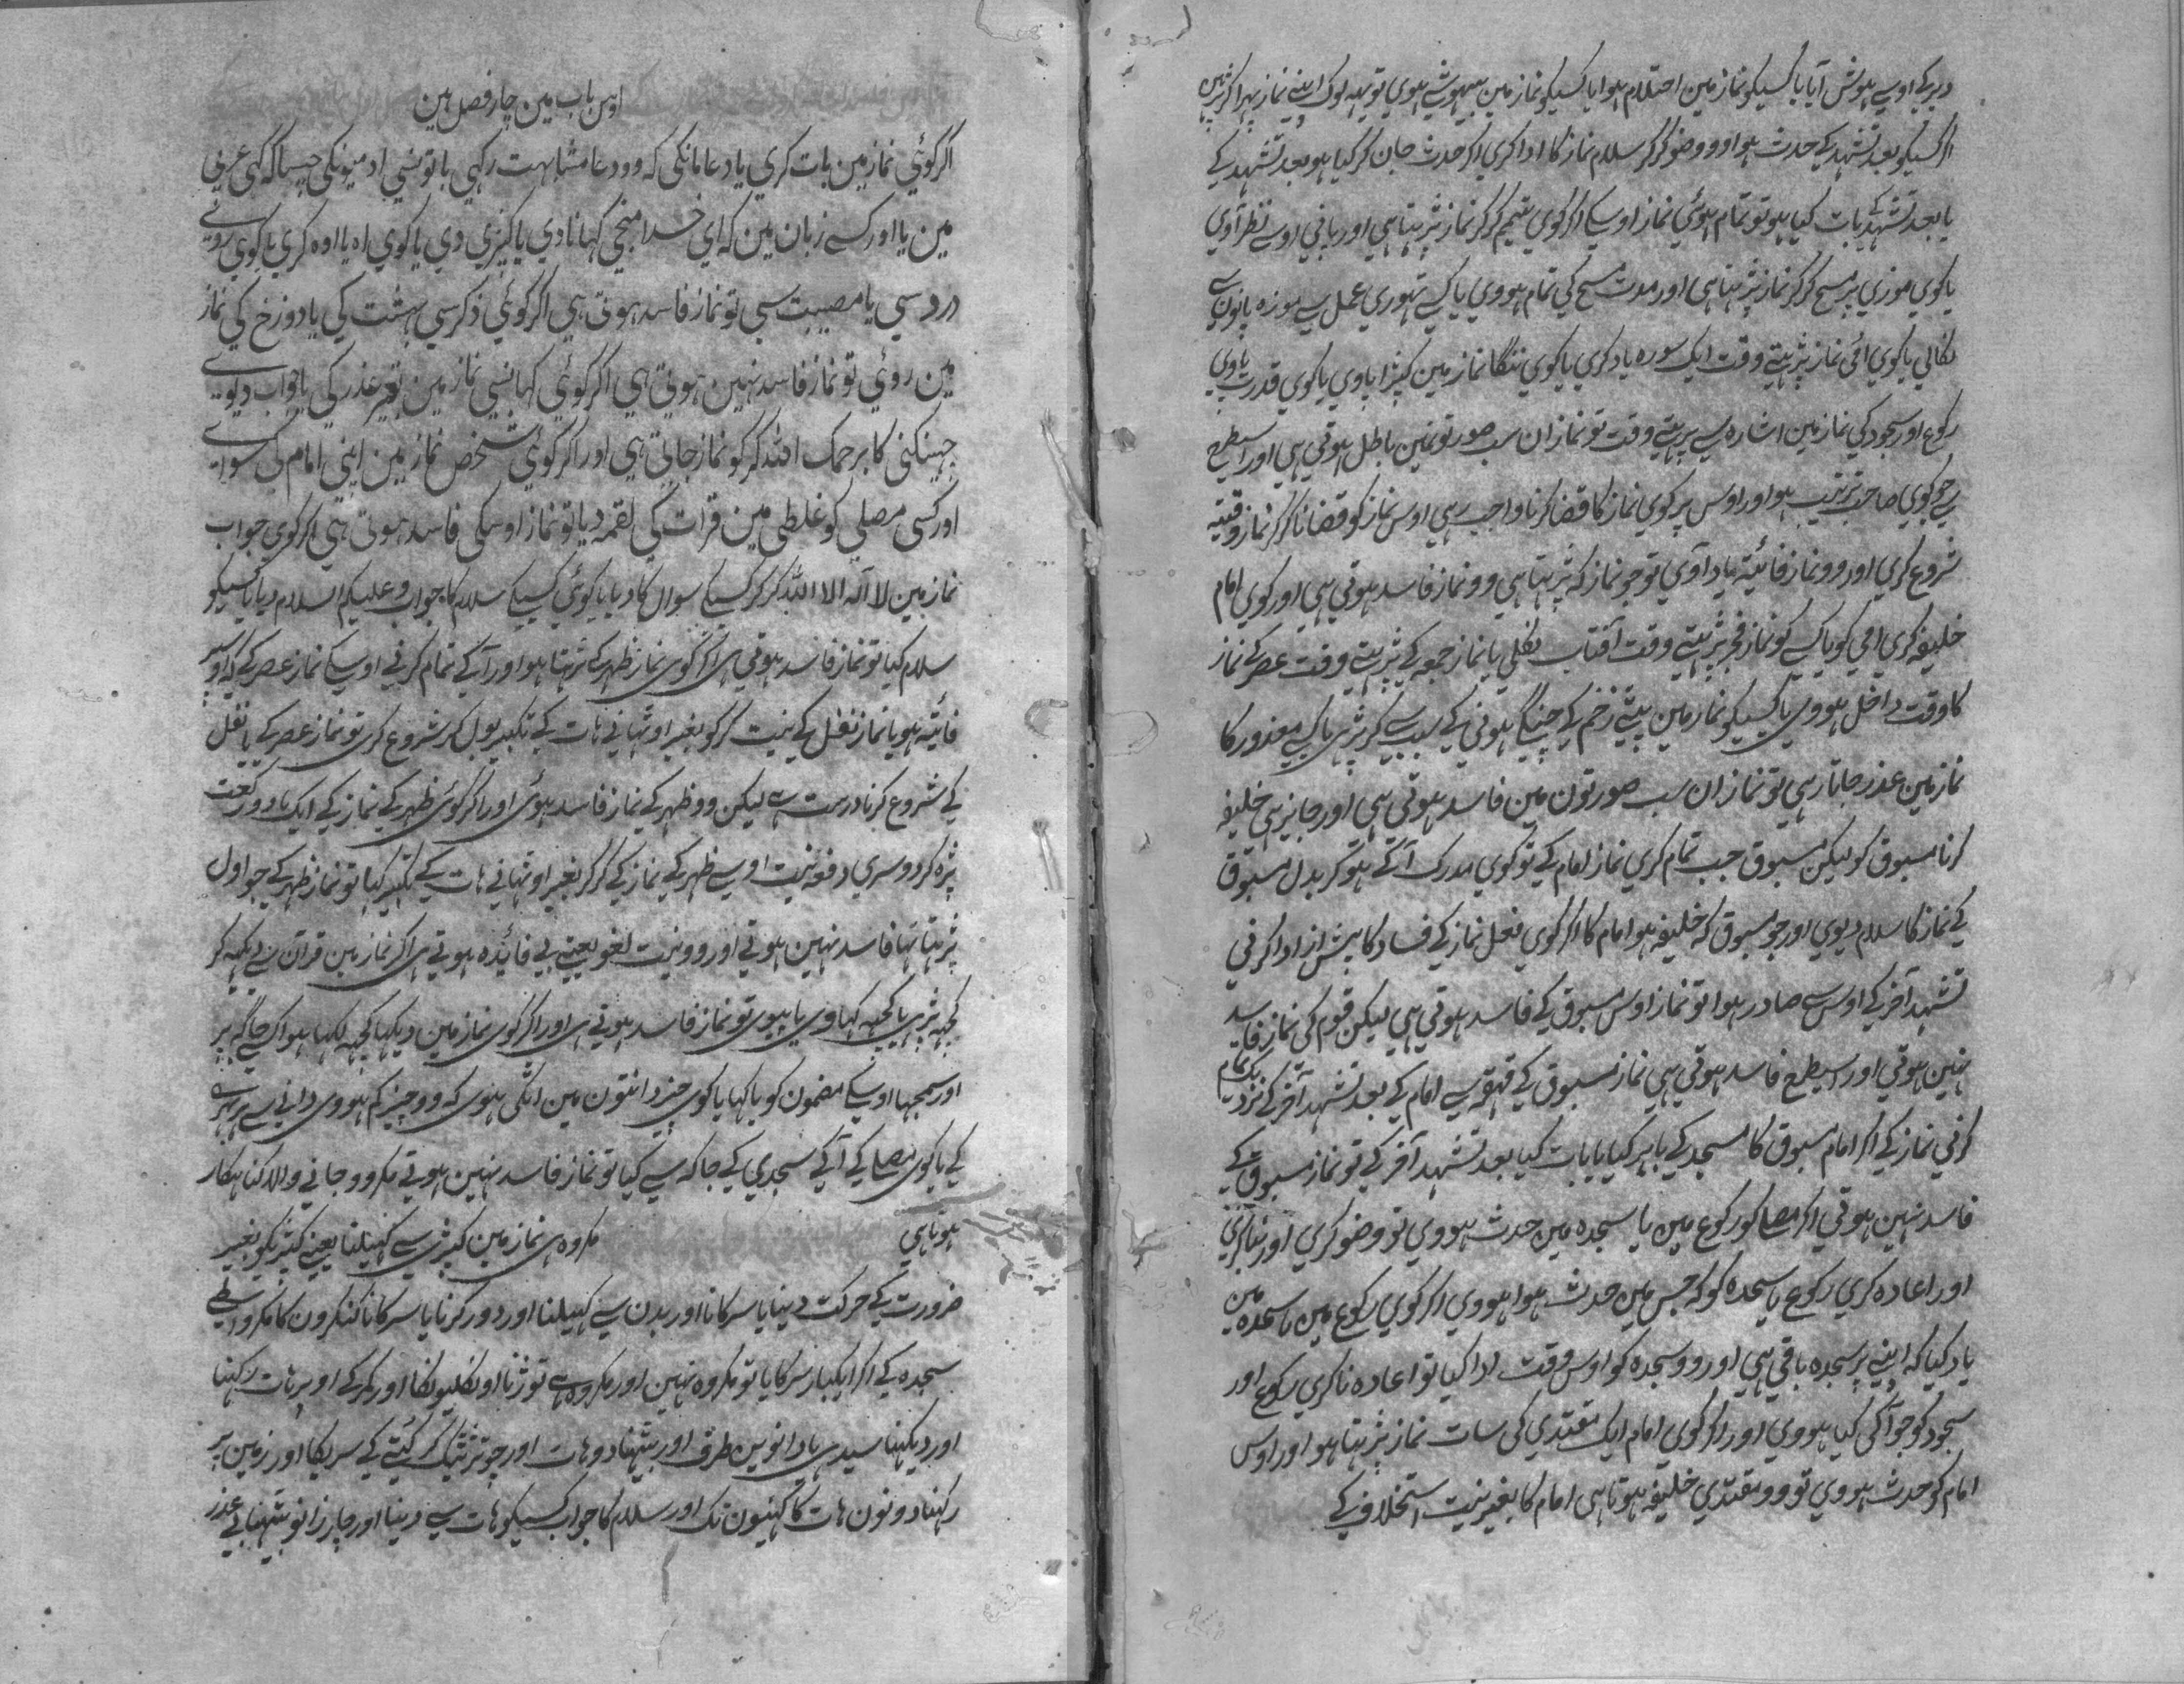 دیر کے اوسے ہوش آیا یا کسیکو نماز مین احتلام ہوا یا کسیکو نماز مین بیہوشے ہوی تو یہہ لوک اپنے نماز پہرا کر پڑہین
اگر کسیکو بعد تشہد کے حدث ہوا وو وضو کر کر سلام نماز کا ادا کری اگر حدث جان کر کیا ہو بعد تشہد کے
یا بعد تشہد کے بات کیا ہو تو تمام ہوئی نماز اوسکے اگر کوی تیمم کر کر نماز پڑہتا ہی اور پانی اوسے نظر آوی
یا کوی موزی پر مسح کر کر نماز پڑہتا ہی اور مدت مسح کی تمام ہووی یا کسے تہوری عمل سے موزہ پانون سے
نکالی یا کوی امی نماز پڑہتے وقت ایک سورہ یاد کری یا کوی ننگا نماز مین کپڑا پاوی یا کوی قدرت پاوی
رکوع اور سجود کی نماز مین اشارہ سے پڑہتے وقت تو نماز ان سب صورتونمین باطل ہوتی ہی اور اسیطرح
ہے جو کوی صاحب ترتیب ہو اور اوس پر کوی نماز کا قضا کرنا واجب رہی اوس نماز کو قضا نا کر کر نماز وقتیہ
شروع کری اور وو نماز فائتہ یاد آوی تو جو نماز کہ پڑہتا ہی وو نماز فاسد ہوتی ہی اور کوی امام
خلیفہ کری امی کو یا کسے کو نماز فجر پڑہتے وقت آفتاب نکلی یا نماز جمعہ کے پڑہتے وقت عصر کے نماز
کا وقت داخل ہووی یا کسیکو نماز مین پٹے زخم کے چنگے ہونی کے سبب سے گر پڑی یا کسے معذور کا
نماز مین عذر جاتا رہی تو نماز ان سب صورتون مین فاسد ہوتی ہی اور جایز ہی خلیفہ
کرنا مسبوق کو لیکن مسبوق جب تمام کری نماز امام کے تو کوی مدرک آگے ہو کر بدل مسبوق
کے نماز کا سلام دیوی اور جو مسبوق کہ خلیفہ ہو امام کا اگر کوی فعل نماز کے فساد کا پیش از ادا کرنی
تشہد آخر کے اوس سے صادر ہوا تو نماز اوس مسبوق کے فاسد ہوتی ہی لیکن قوم کی نماز فاسد
نہین ہوتی اور اسیطرح فاسد ہوتی ہی نماز مسبوق کے قہقہ سے امام کے بعد تشہد آخر کے نزدیک تمام
کرنی نماز کے اگر امام مسبوق کا مسجد کے باہر گیا یا بات کیا بعد تشہد آخر کے تو نماز مسبوق کے
فاسد نہین ہوتی اگر مصلے کو رکوع مین یا سجدہ مین حدث ہووی تو وضو کری اور بنا کری
اور اعادہ کری رکوع یا سجدہ کو کہ جس مین حدث ہوا ہووی اگر کوی رکوع مین یا سجدہ مین
یاد کیا کہ اپنے پر سجدہ باقی ہی اور وو سجدہ کو اوس وقت ادا کیا تو اعادہ نا کری رکوع اور
سجود کو جو آگی کیا ہووی اور اگر کوی امام ایک مقتدی کی سات نماز پڑہتا ہو اور اوس
امام کو حدث ہووی تو وو مقتدی خلیفہ ہوتا ہی امام کا بغیر نیت استخلاف کے
اوس باب مین چار فصل ہین
اگر کوئی نماز مین بات کری یا دعا مانگی کہ وو دعا مشابہت رکہی باتونسی ادمیونکی جیسا کہ کہی عربی
مین یا اور کسے زبان مین کہ ای خدا مجہی کہانا دی یا کنیزی دی یا کوی اہ یا اوہ کری یا کوی رووے
درد سی یا مصیبت سی تو نماز فاسد ہوتی ہی اگر کوئی ذکر سی بہشت کی یا دوزخ کی نماز
مین روئی تو نماز فاسد نہین ہوتی ہی اگر کوئی کہانسی نماز مین بغیر عذر کی یا جواب دیوے
چہینکنی کا یرحمک اللہ کر کو نماز جاتی ہی اور اگر کوئی شخص نماز مین اپنی امام کی سواے
اور کسی مصلی کو غلطی مین قرات کی لقمہ دیا تو نماز اوسکی فاسد ہوتی ہی اگر کوی جواب
نماز مین لا الہ الا اللہ کر کر کسیکے سوال کا دیا یا کوئی کسیکے سلام کا جواب وعلیکم السلام دیا یا کسیکو
سلام کیا تو نماز فاسد ہوتی ہی اگر کوی نماز ظہر کے پڑہتا ہو اور آگے تمام کرنی اوسکے نماز عصر کے کہ اوسپر
فائتہ ہو یا نماز نفل کے نیت کر کو بغیر اوٹہانے ہات کے تکبیر بول کر شروع کری تو نماز عصر کے یا نفل
کے شروع کرنا درست ہے لیکن وو ظہر کے نماز فاسد ہوئی اور اگر کوئی ظہر کے نماز کے ایک یا دو رکعت
پڑہ کر دوسری دفعہ نیت اوسے ظہر کے نماز کے کر کر بغیر اوٹہانے ہات کے تکبیر کہا تو نماز ظہر کے جو اول
پڑہتا تہا فاسد نہین ہوتی اور وو نیت لغو یعنے بی فائدہ ہوتی ہی اگر نماز مین قرآن سے دیکہہ کر
کچہہ پڑہی یا کچہہ کہاوی یا پیوی تو نماز فاسد ہوتی ہی اور اگر کوی نماز مین دیکہا کچہہ لکہا ہوا کسے جاگہ پر
اور سمجہا اوسکے مضمون کو یا کہا یا کوی چیز دانتون مین اٹکی ہوی کہ وو چیز کم ہووی دانے سے بربرے
کے یا کوی مصلے کے آگے سجدی کے جاگہ سے گیا تو نماز فاسد نہین ہوتے مگر وو جانے والا گناہگار
ہوتا ہی مکروہ ہی نماز مین کپڑی سے کہیلنا یعنے کپڑیکو بغیر
ضرورت کے حرکت دینا یا سرکانا اور بدن سے کہیلنا اور دور کرنا یا سرکانا کنکرون کا مگر واسطے
سجدہ کے اگر ایکبار سرکایا تو مکروہ نہین اور مکروہ ہے توڑنا اونگلیونکا اور کمر کے اوپر ہات رکہنا
اور دیکہنا سیدی یا دانوین طرف اور بیٹہنا دو ہات اور چوتڑ ٹیک کر کتے کے سریکا اور زمین پر
رکہنا دونون ہات کا کہنیون تک اور سلام کا جواب کسیکو ہات سے دینا اور چار زانو بیٹہنا بے عذر